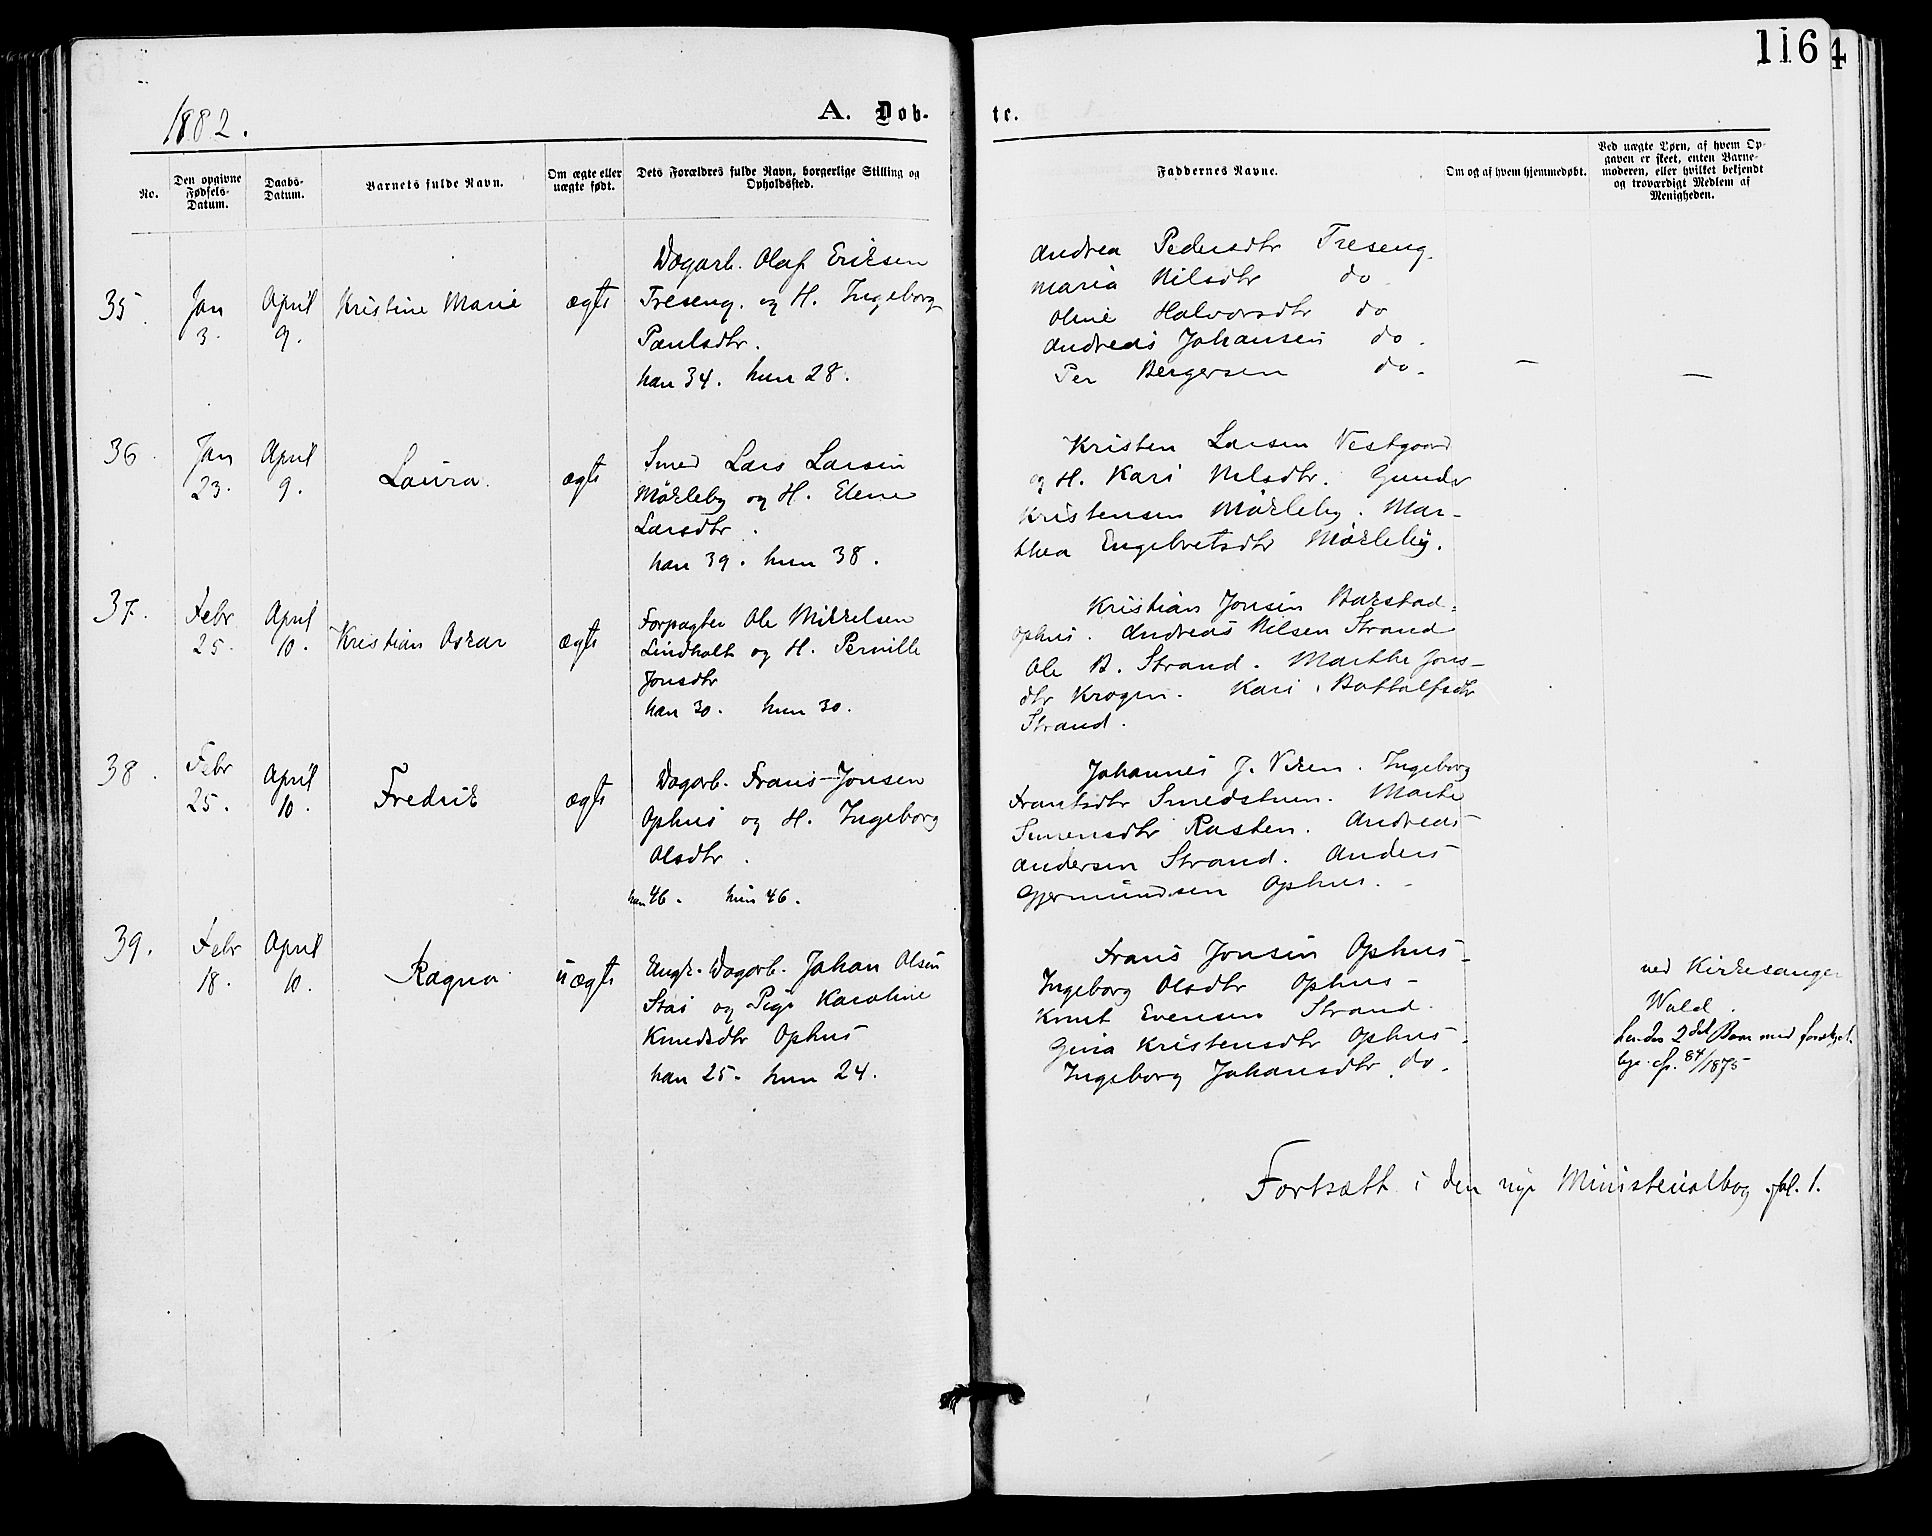 116
4
1882.
A. Døb-
te.
No.
Den opgivne
Fødsels-
Datum.
Daabs-
Datum.
Barnets fulde Navn.
Om ægte eller
uægte født.
Dets Forældres fulde Navn, borgerlige Stilling og
Opholdssted.
Faddernes Navne.
Om og af hvem hjemmedøbt.
Ved uægte Børn, af hvem Op-
gaven er skeet, enten Barne-
moderen, eller hvilket bekjendt
og troværdigt Medlem af
Menigheden.
35.
Jan
3.
April
9.
Kristine Marie
ægte
Dagarb. Olaf Eriksen
Treseng. og H. Ingeborg
Paulsdtr.
han 34. hun 28.
Andrea Pedersdtr Treseng.
Maria Nilsdtr do
Oline Halvorsdtr do
Andreas Johansen do.
Per Bergersen do.
—
—
36.
Jan
23.
April
9.
Laura.
ægte
Smed Lars Larsen
Mørkeby og H. Elene
Larsdtr.
han 39. hun 38.
Kristen Larsen Vestgaard
og H. Kari Nilsdtr. Gunder
Kristensen Mørkeby. Mar-
thea Engebretsdtr Mørkeby.
37.
Febr
25.
April
10.
Kristian Oskar
ægte
Forpagter Ole Mikkelsen
Lindholt og H. Pernille
Jonsdtr
han 30. hun 30.
Kristian Jonsen Bakstad.
Ophus. Andreas Nilsen Strand
Ole B. Strand. Marthe Jons-
dtr Krogen. Kari Bottolfsdtr
Strand.
38.
Febr
25.
April
10.
Fredrik
ægte
Dagarb. Frans Jonsen
Ophus og H. Ingeborg
Olsdtr.
han 46. hun 46.
Johannes J. Viken. Ingeborg
Frantsdtr Smedstuen. Marte
Simensdtr Rasten. Andreas
Andersen Strand. Anders
Gjermundsen Ophus.
39.
Febr
18.
April
10.
Ragna
uægte
Ungk. Dagarb. Johan Olsen
Stai og Pige Karoline
Knudsdtr Ophus
han 25. hun 24.
Frans Jonsen Ophus
Ingeborg Olsdtr Ophus
Knut Evensen Strand.
Gina Kristensdtr Ophus.
Ingeborg Johansdtr do.
ved Kirkesanger
Wald.
hendes 2det Barn med forskjel-
lige. cfr. 84/1875
Fortsætt i den nye Ministerialbog fol. 1.